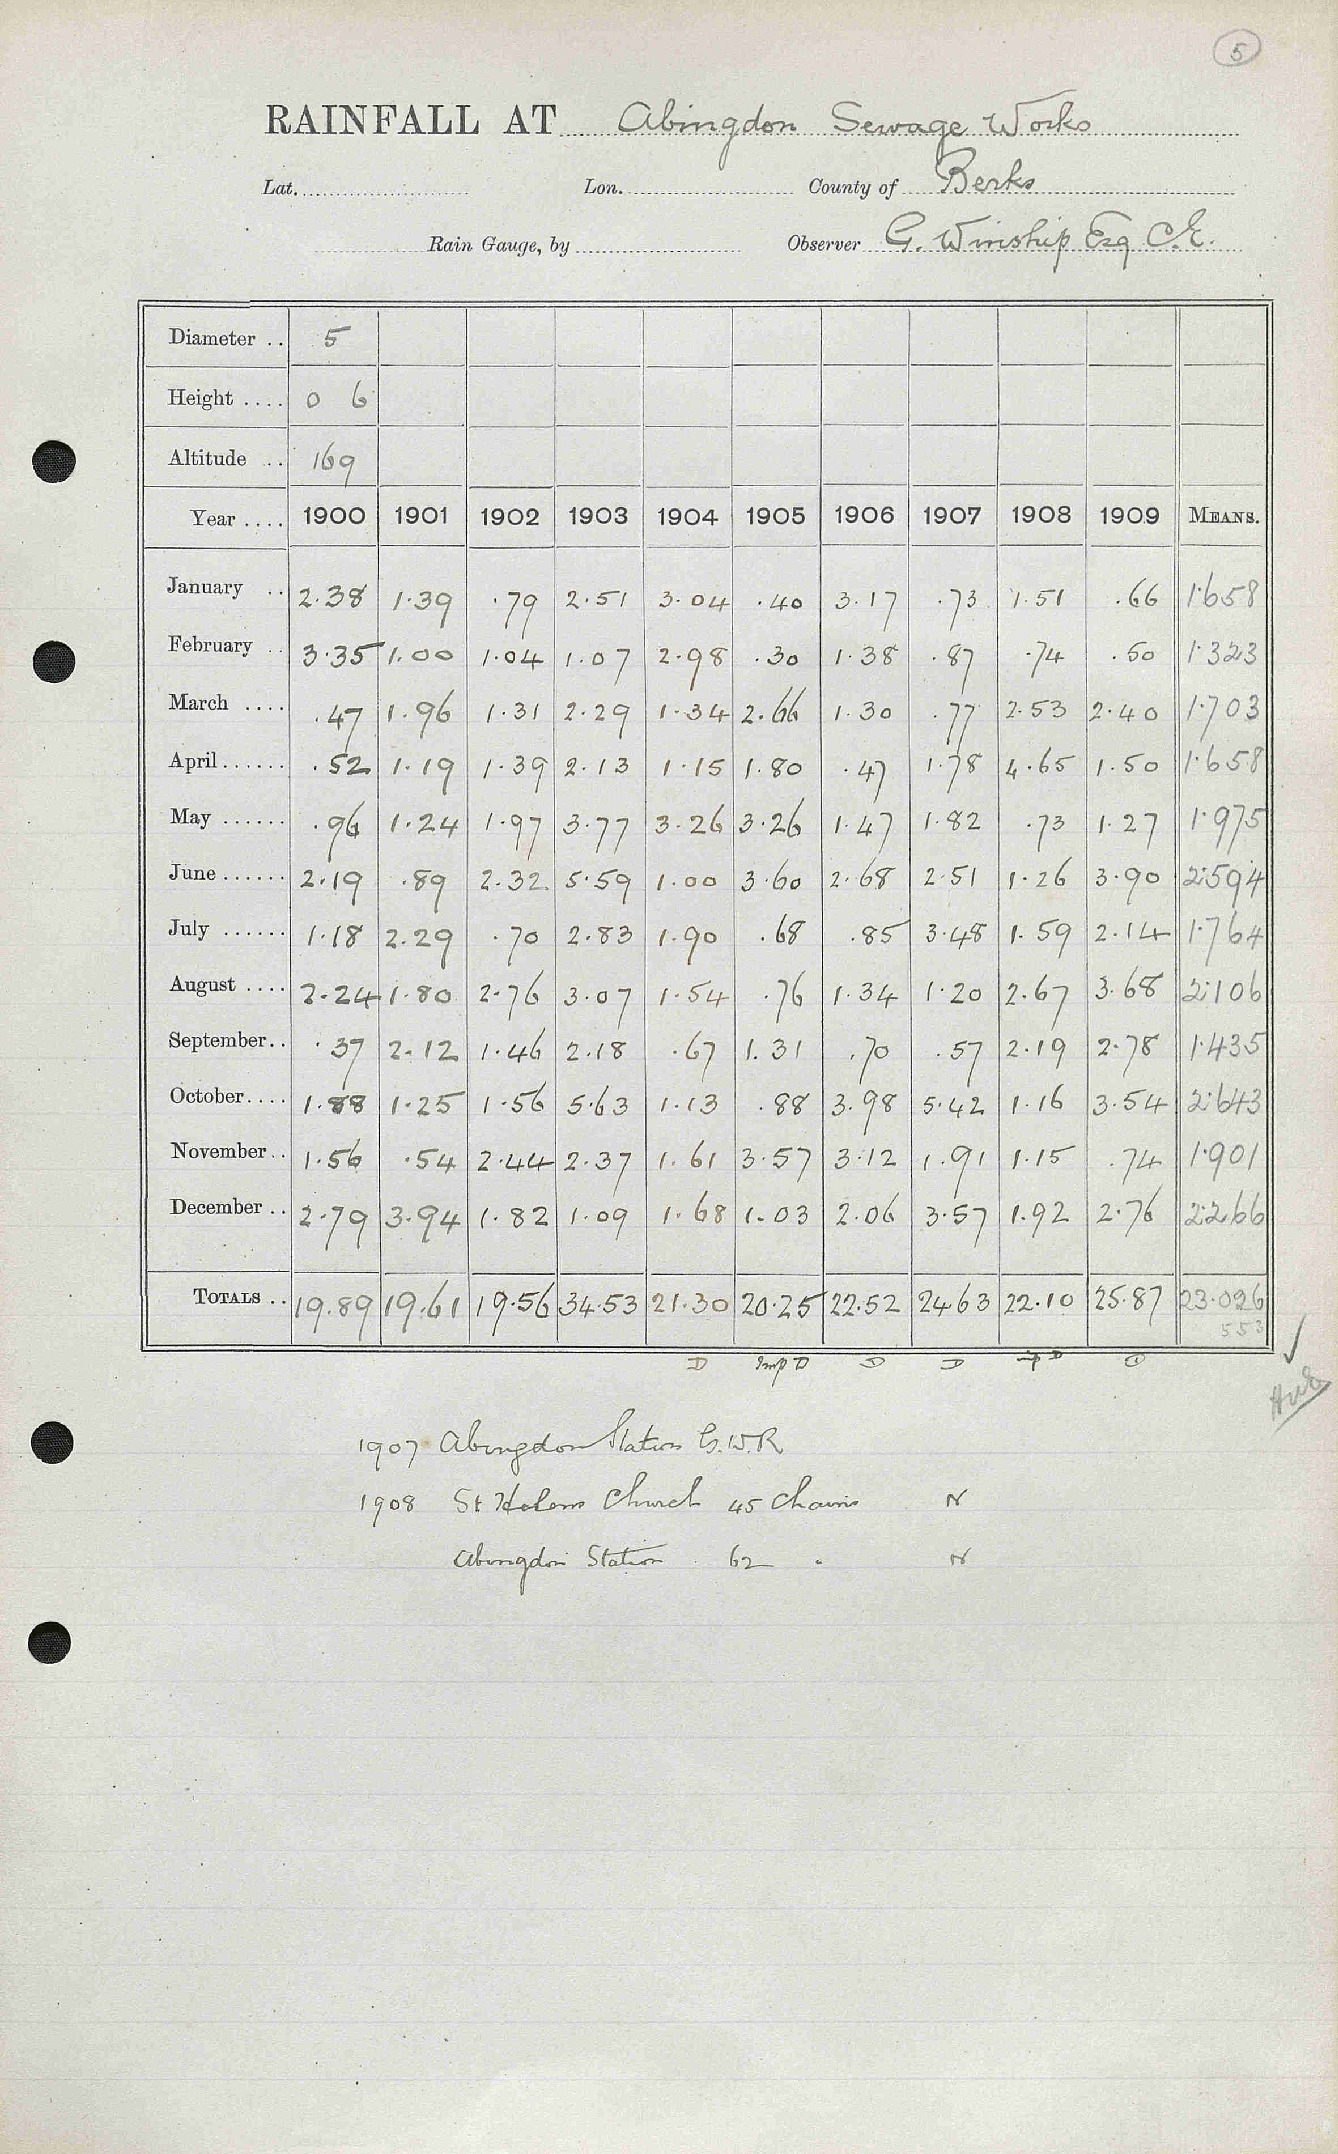 5
RAINFALL AT Abingdon Sewage Works
Lat. Lon. County of Berks
Rain Gauge, by Observer G. Winship Esq C.E.
Diameter .. 5
Height .... 0 6
Altitude .. 169
Year .... 1900 1901 1902 1903 1904 1905 1906 1907 1908 1909 MEANS.
January .. 2.38 1.39 .79 2.51 3.04 .40 3.17 .73 1.51 .66 1.658
February .. 3.35 1.00 1.04 1.07 2.98 .30 1.38 .87 .74 .50 1.323
March .... .47 1.96 1.31 2.29 1.34 2.66 1.30 .77 2.53 2.40 1.703
April...... .52 1.19 1.39 2.13 1.15 1.80 .47 1.78 4.65 1.50 1.658
May ...... .96 1.24 1.97 3.77 3.26 3.26 1.47 1.82 .73 1.27 1.975
June ...... 2.19 .89 2.32 5.59 1.00 3.60 2.68 2.51 1.26 3.90 2.594
July ...... 1.18 2.29 .70 2.83 1.90 .68 .85 3.48 1.59 2.14 1.764
August .... 2.24 1.80 2.76 3.07 1.54 .76 1.34 1.20 2.67 3.68 2.106
September.. .37 2.12 1.46 2.18 .67 1.31 .70 .57 2.19 2.78 1.435
October.... 1.88 1.25 1.56 5.63 1.13 .88 3.98 5.42 1.16 3.54 2.643
November.. 1.56 .54 2.44 2.37 1.61 3.57 3.12 1.91 1.15 .74 1.901
December .. 2.79 3.94 1.82 1.09 1.68 1.03 2.06 3.57 1.92 2.76 2.266
TOTALS .. 19.89 19.61 19.56 34.53 21.30 20.25 22.52 24.63 22.10 25.87 23.026
553
D Imp D D D D
1907 Abingdon Station G.W.R
1908 St Helens Church 45 Chains N
Abingdon Station 62 " N